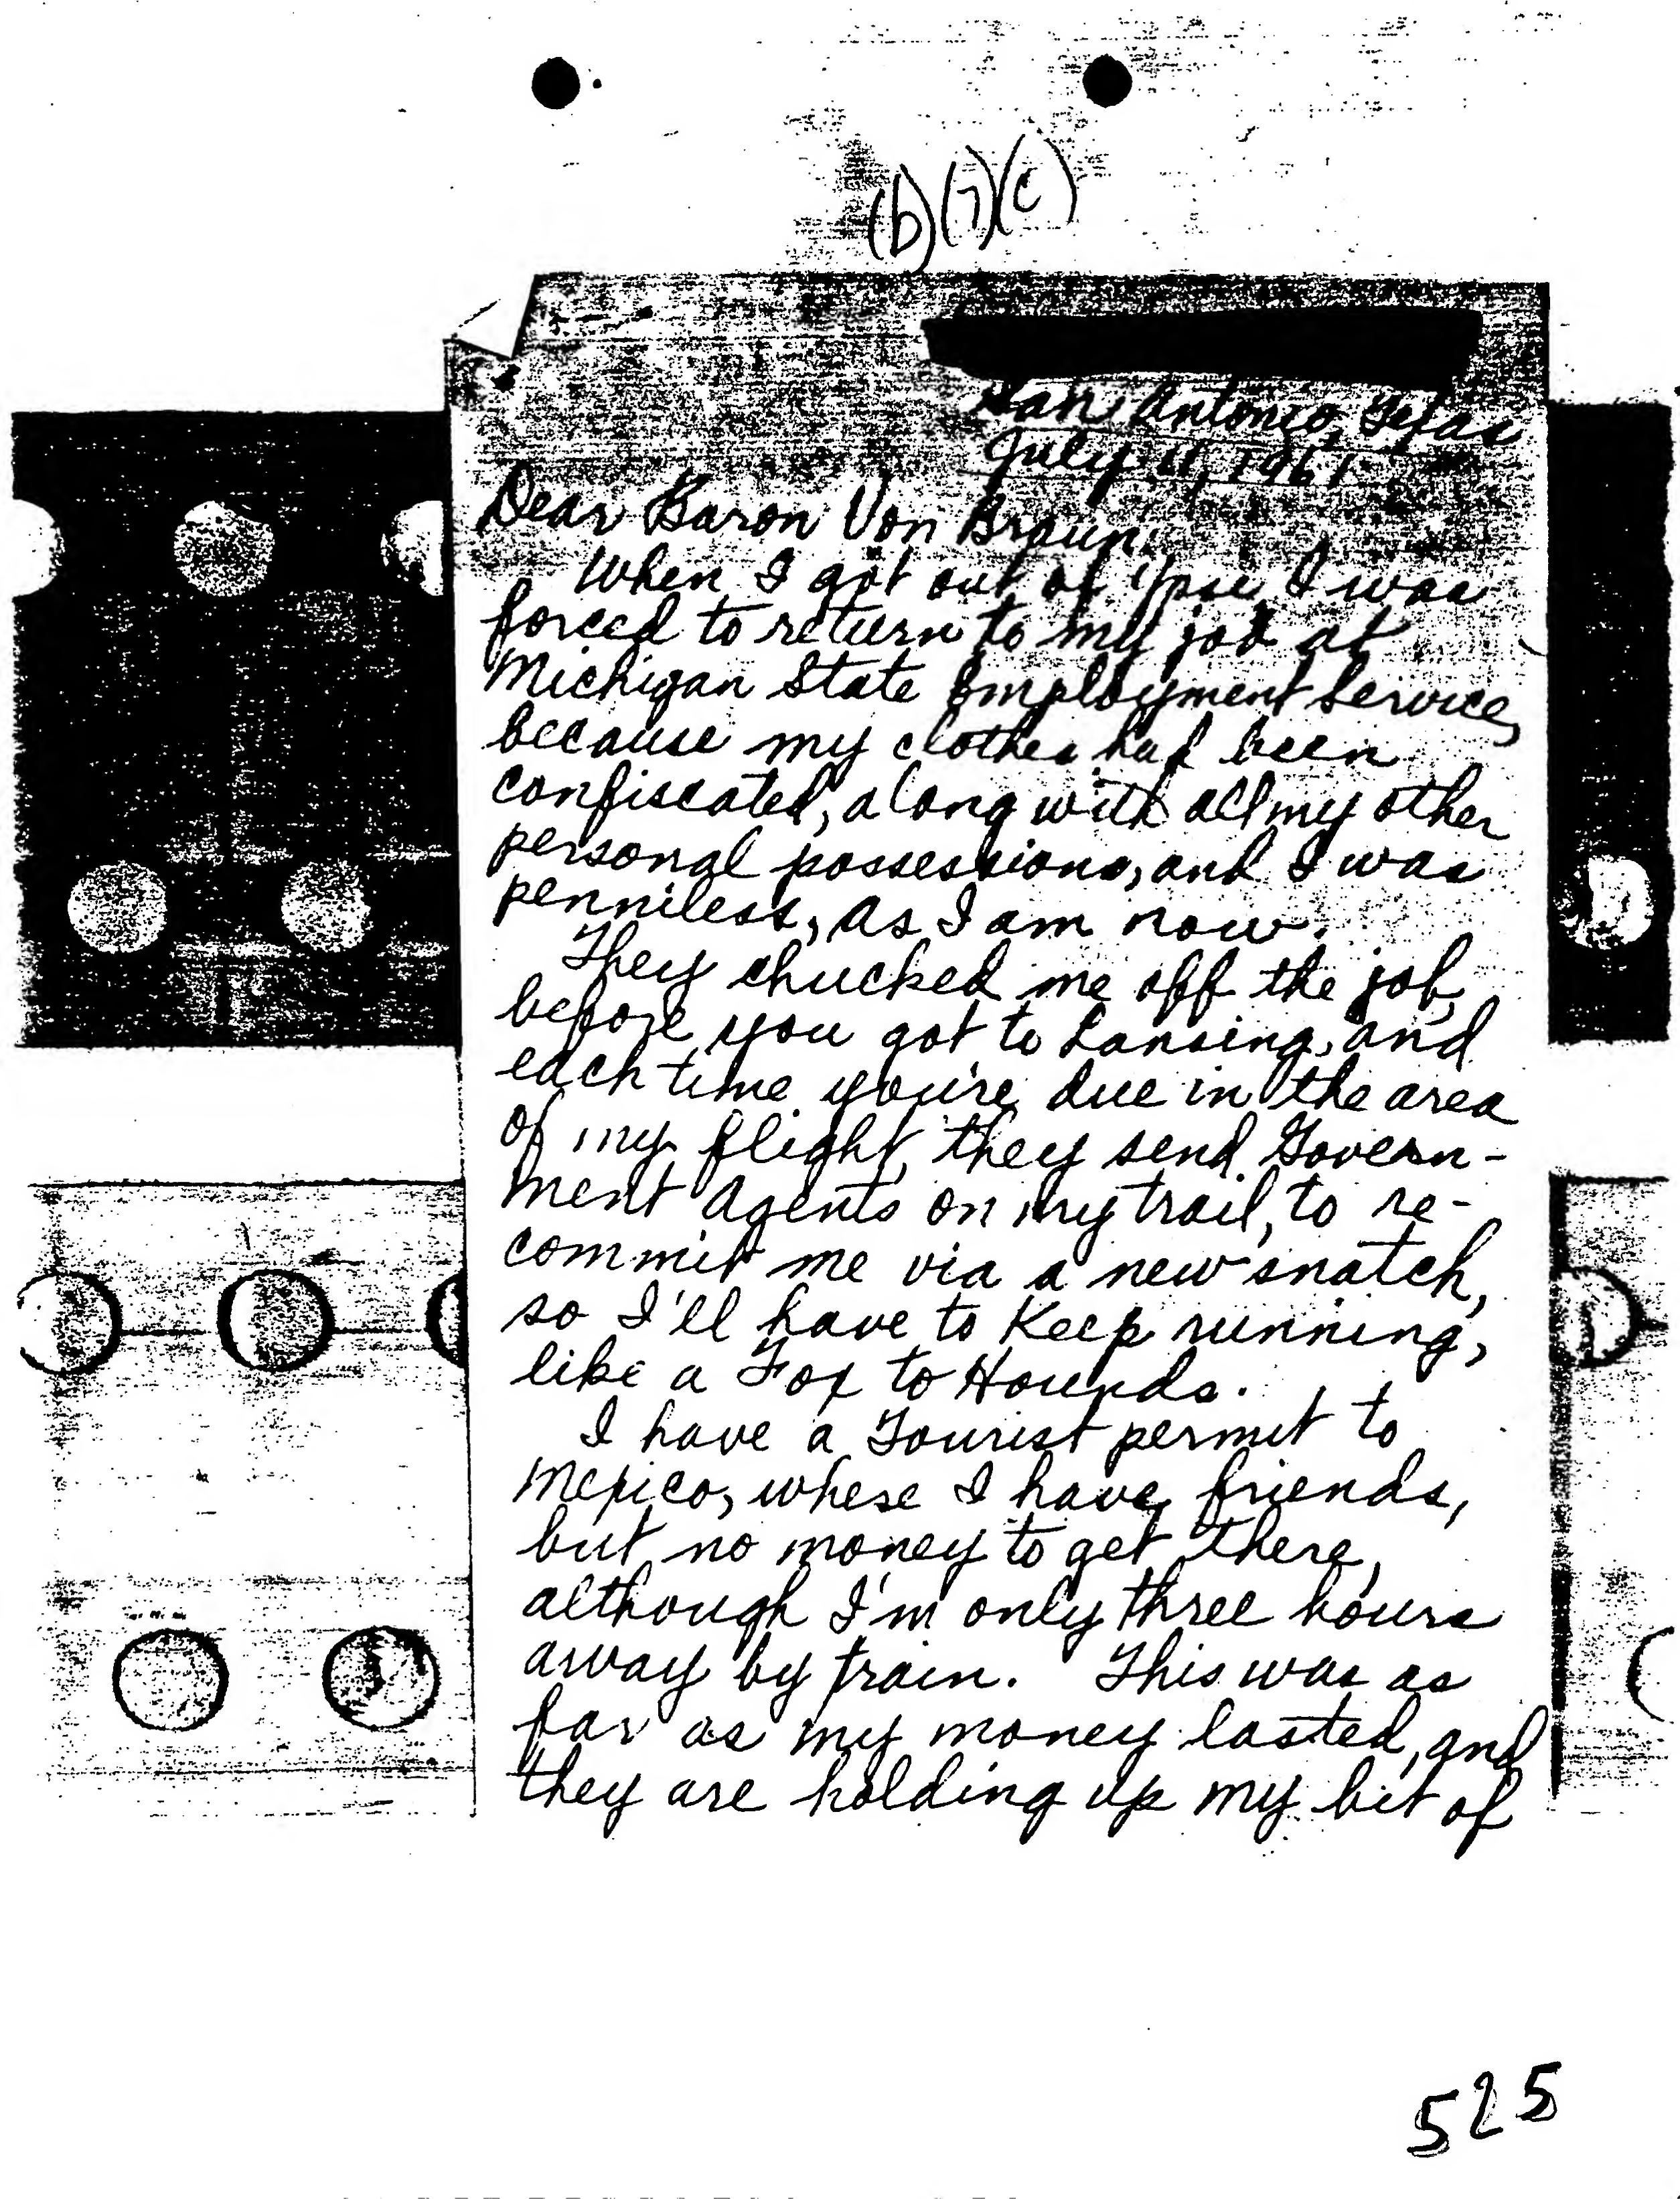 (b)(7)(c)
San Antonio, Texas
July 11, 1961
Dear Baron Von Braun:
When I got out of Ypsi, I was
forced to return to my job at
Michigan State Employment Service,
because my clothes had been
confiscated, along with all my other
personal possessions, and I was
penniless, as I am now.
They chucked me off the job,
before you got to Lansing, and
each time you're due in the area
of my flight, they send Govern-
ment Agents on my trail, to re-
commit me via a new snatch,
so I'll have to keep running,
like a Fox to Hounds.
I have a Tourist permit to
Mexico, where I have friends,
but no money to get there,
although I'm only three hours
away by train. This was as
far as my money lasted, and
they are holding up my bit of
525